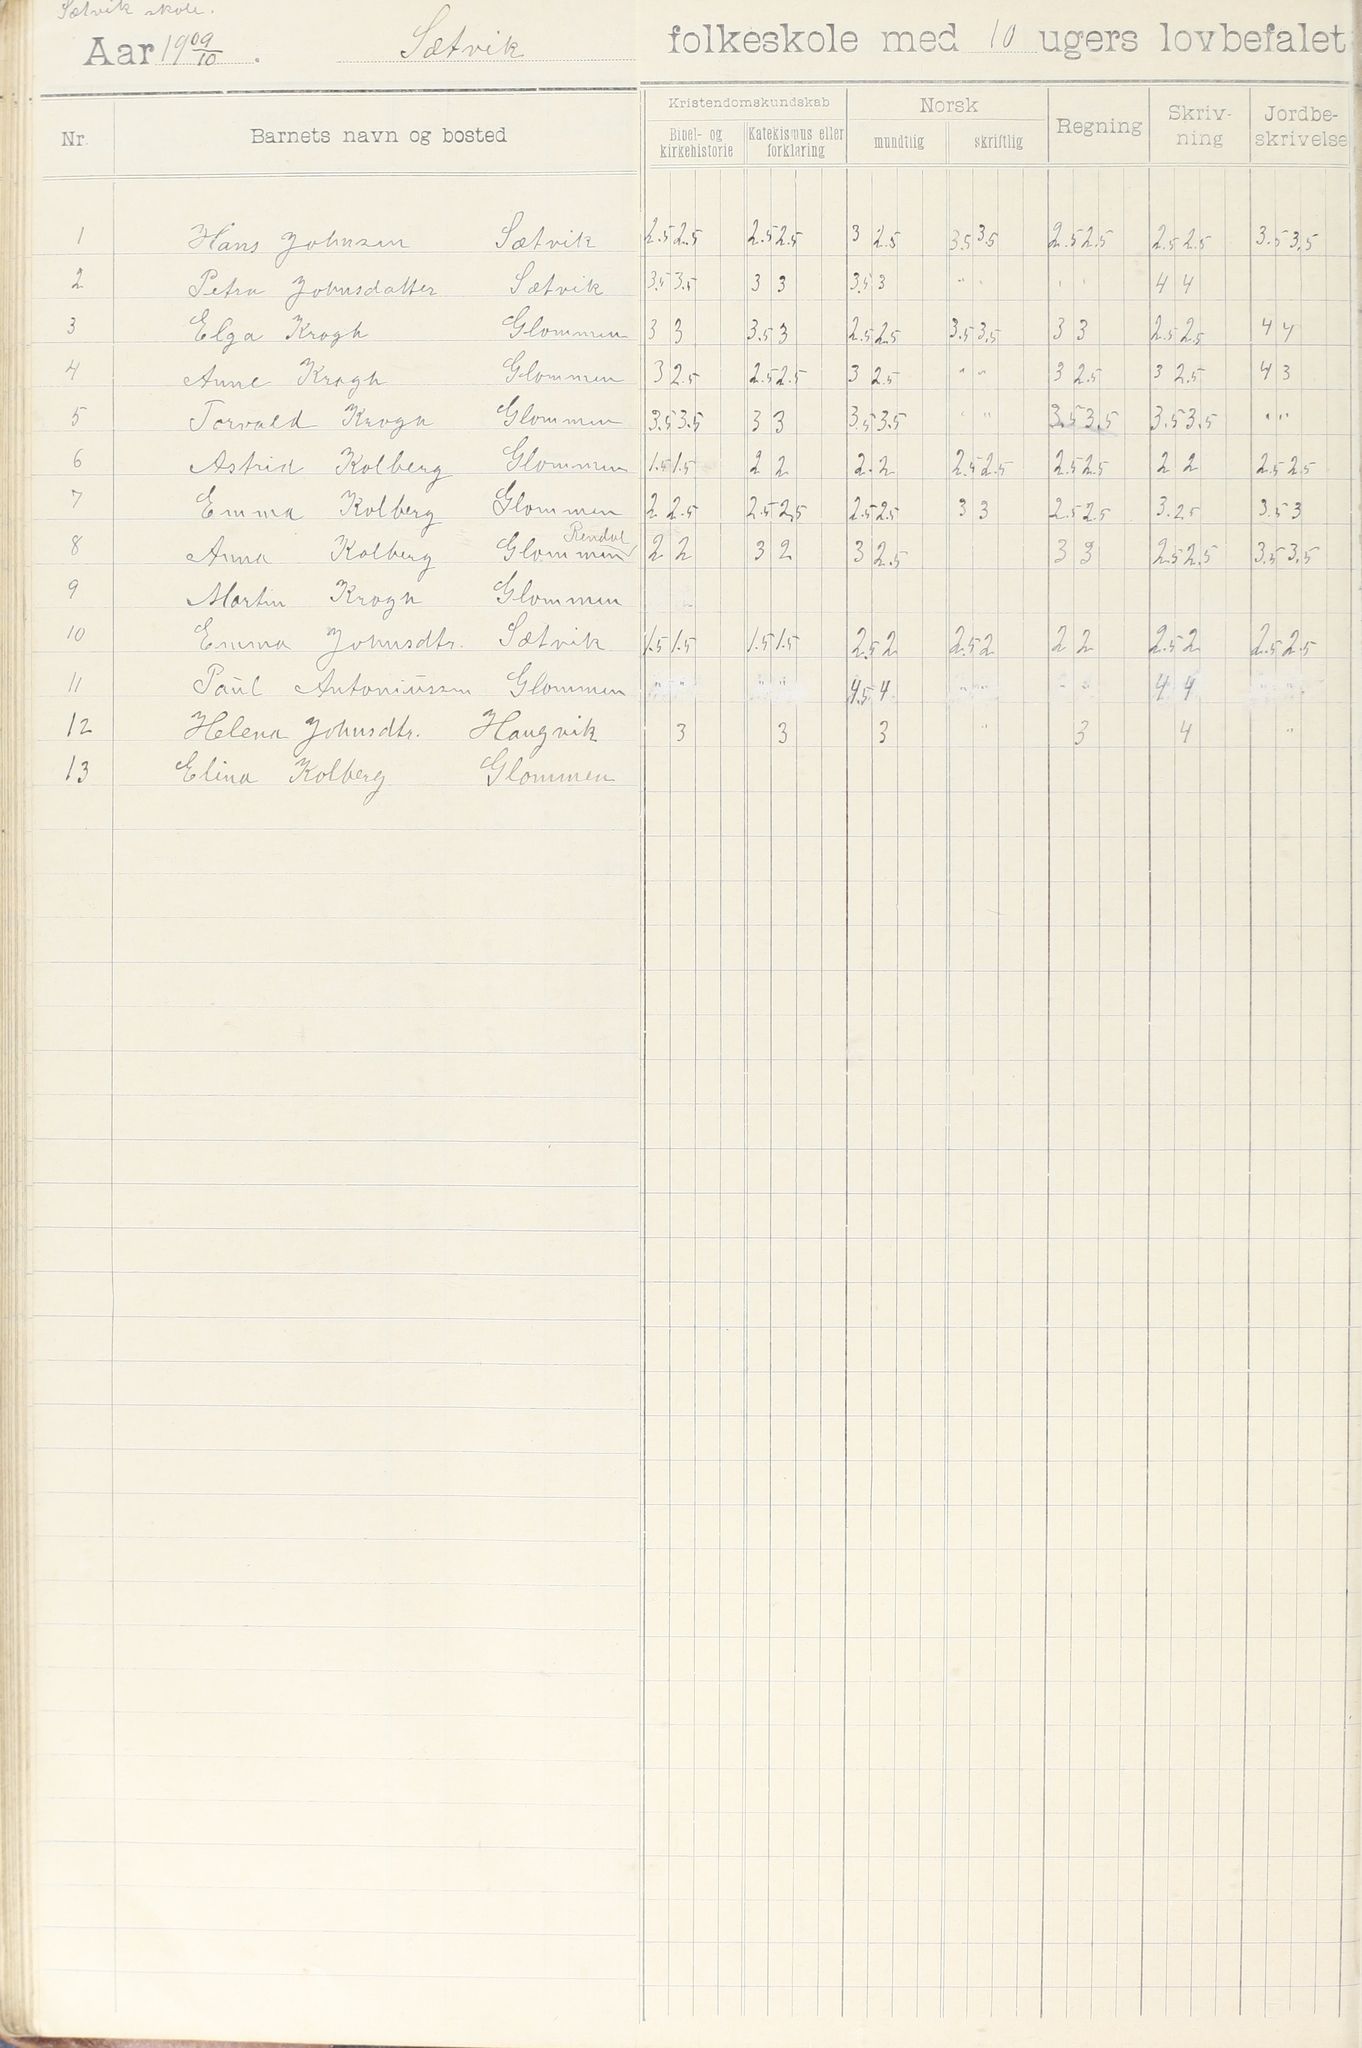 Sætvik skole.
Aar 1909/10. Sætvik folkeskole med 10 ugers lovbefalet
Nr. Barnets navn og bosted Kristendomskundskab Norsk Regning Skriv-ning Jordbe-skrivelse
Bibel- og kirkehistorie Katekismus eller forklaring mundtlig skriftlig
1 Hans Johnsen Sætvik 2.5 2.5 2.5 2.5 3 2.5 3.5 3.5 2.5 2.5 2.5 2.5 3.5 3.5
2 Petra Johnsdatter Sætvik 3.5 3.5 3 3 3.5 3 " " " " 4 4
3 Elga Krogh Glommen 3 3 3.5 3 2.5 2.5 3.5 3.5 3 3 2.5 2.5 4 4
4 Anne Krogh Glommen 3 2.5 2.5 2.5 3 2.5 " " 3 2.5 3 2.5 4 3
5 Torvald Krogh Glommen 3.5 3.5 3 3 3.5 3.5 " " 3.5 3.5 3.5 3.5 " "
6 Astrid Kolberg Glommen 1.5 1.5 2 2 2.2 2.5 2.5 2.5 2.5 2 2 2.5 2.5
7 Emma Kolberg Glommen 2 2.5 2.5 2.5 2.5 2.5 3 3 2.5 2.5 3. 2.5 3.5 3
Rendal
8 Anna Kolberg Glommen 2 2 3 2 3 2.5 3 3 2.5 2.5 3.5 3.5
9 Martin Krogh Glommen
10 Emma Johnsdtr. Sætvik 1.5 1.5 1.5 1.5 2.5 2 2.5 2 2 2 2.5 2 2.5 2.5
11 Paul Antoniussen Glommen " " " " 4.5 4 " " " " 4 4 " "
12 Helena Johnsdtr. Haugvik 3 3 3 " 3 4 "
13 Elina Kolberg Glommen